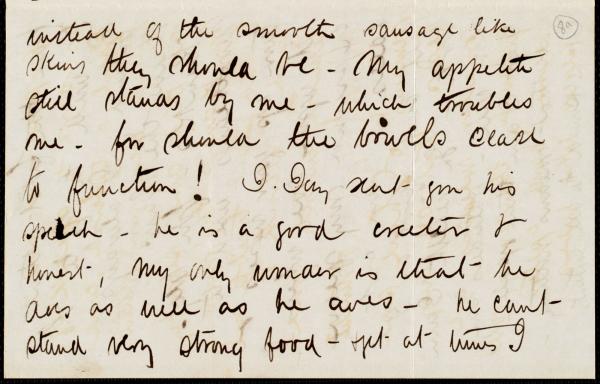 8a
instead of the smooth sausage like
skins they should be - My appetite
still stands by me - which troubles
me - for should the bowells cease
to function! D. Day sent you his
speech - he is a good &
honest, my only wonder is that he
does as well as he does - he cant
stand very strong food - yet at times I